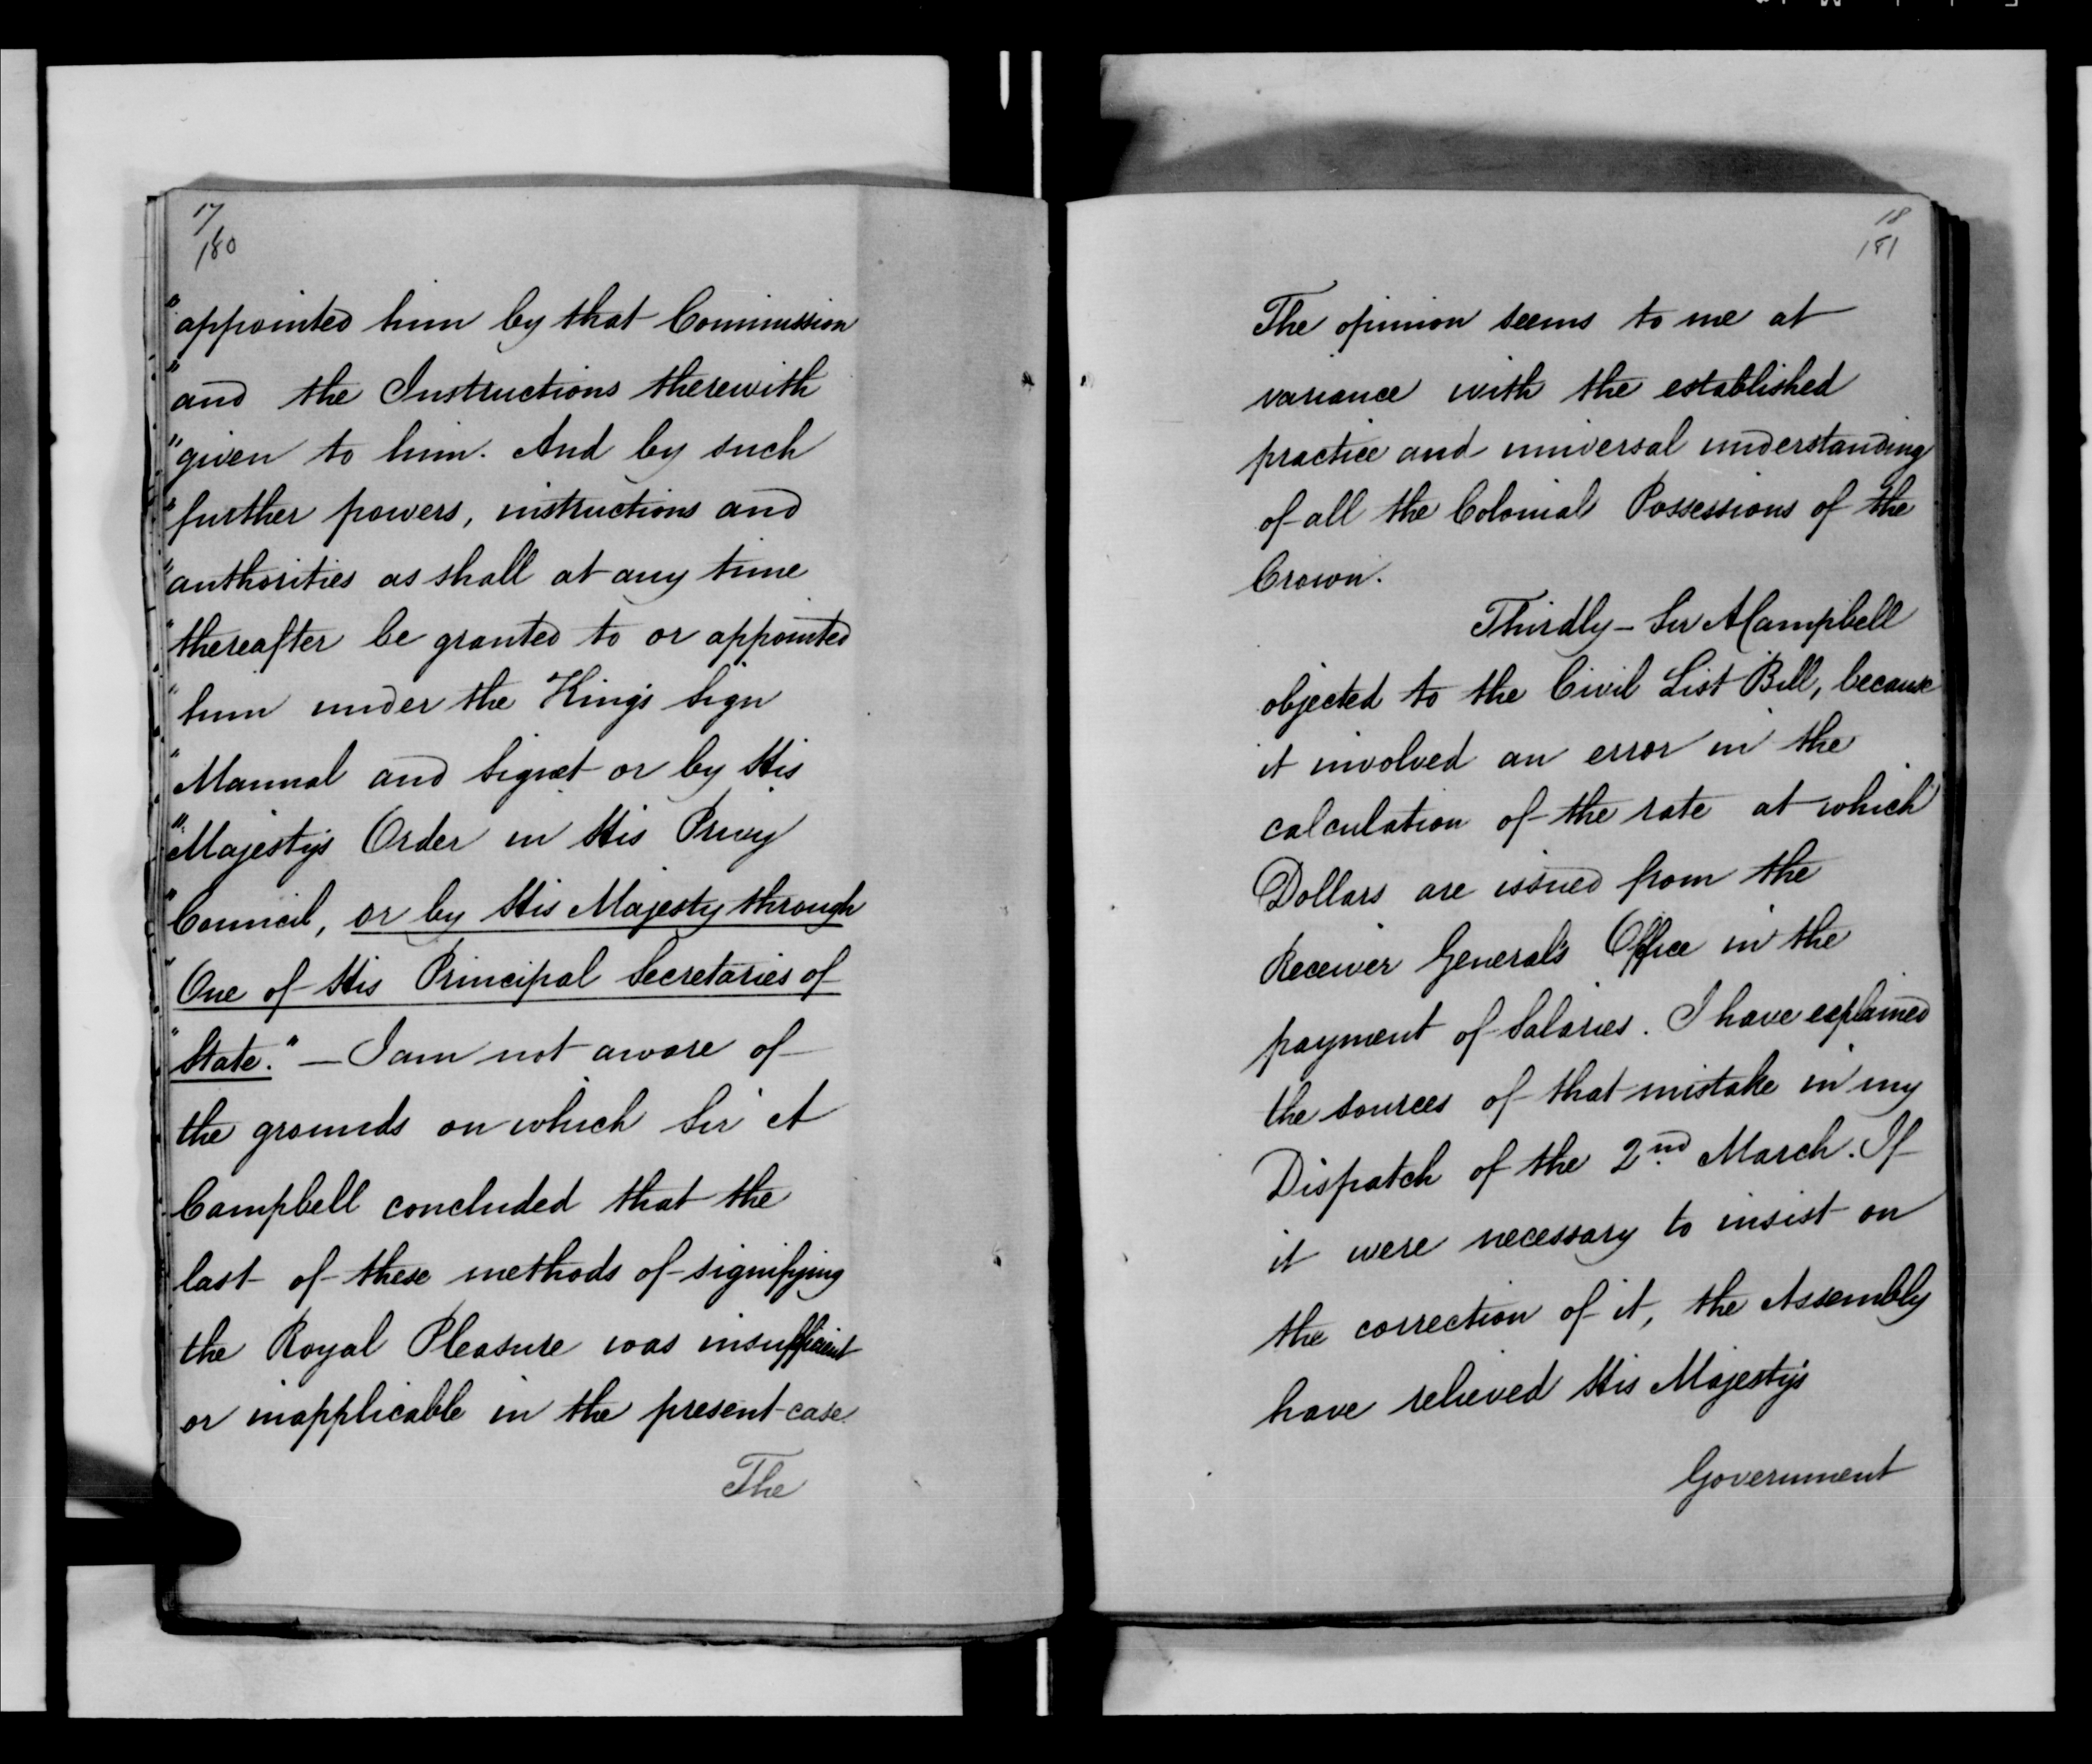 17
180
"appointed him by that Commission
"and the Instructions therewith
"given to him. And by such
"further powers, instructions and
"authorities as shall at any time
"thereafter be granted to or appointed
"him under the King's Sign
"Manual and Signet or by His
"Majesty's Order in His Privy
"Council, or by His Majesty through
"One of His Principal Secretaries of
"State." — I am not aware of
the grounds on which Sir A
Campbell concluded that the
last of these methods of signifying
the Royal Pleasure was insufficient
or inapplicable in the present case.
The
18
181
The opinion seems to me at
variance with the established
practice and universal understanding
of all the Colonial Possessions of the
Crown.
Thirdly – Sir A Campbell
objected to the Civil List Bill, because
it involved an error in the
calculation of the rate at which
Dollars are issued from the
Receiver General's Office in the
payment of Salaries. I have explained
the sources of that mistake in my
Dispatch of the 2nd March. If
it were necessary to insist on
the correction of it, the Assembly
have relieved His Majesty's
Government